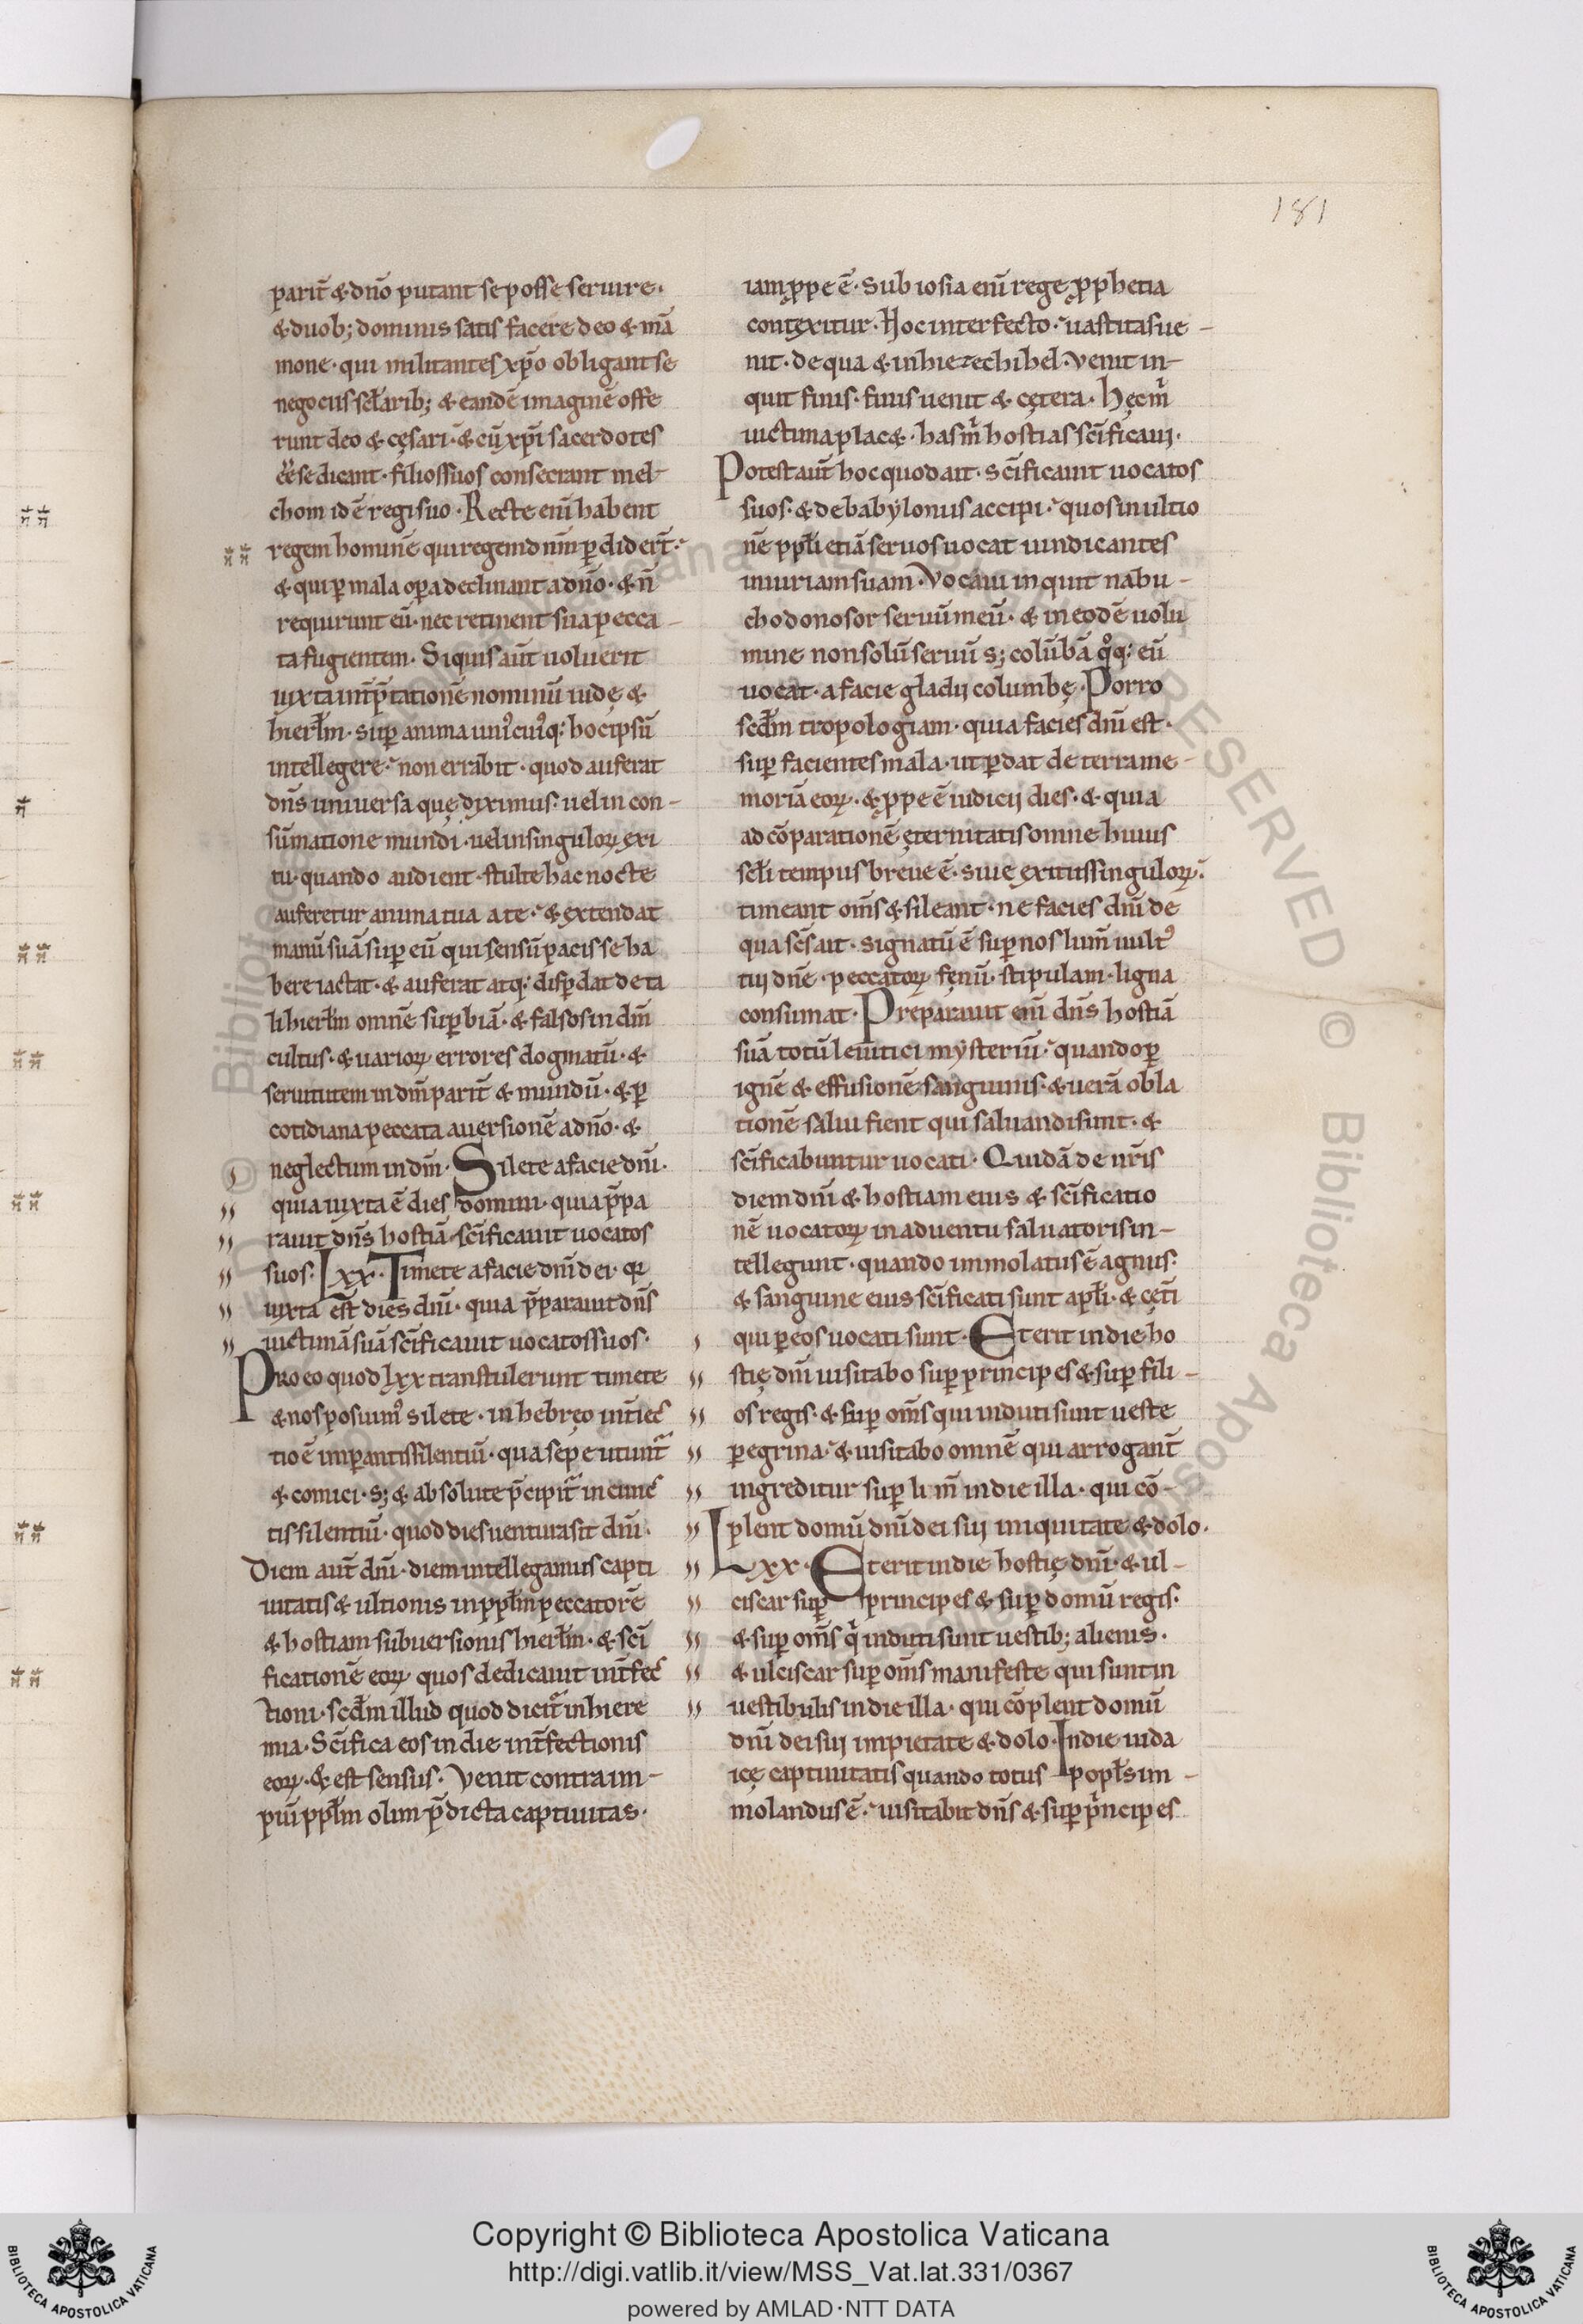 181
parit̅ & dn̅o putant se posse seruire.
& duob; dominis satis facere deo & mā
mone. qui militantes xp̅o obligant se
negociis scl̅arib; & eandē imaginē offe
runt deo & cęsari. & cū xp̅i sacerdotes
e̅e̅ se dicant. filios suos consecrant mel-
chom id ē regi suo. Recte eni̅ habent
regem hominē qui regem dn̅m ꝑdidert̅.
& qui ꝑ mala opa declinant a dn̅o. & n̅
requirunt eū. nec retinent sua pecca-
ta fugientem. Si quis aut̅ uoluerit
iuxta int̅p̅tationē nominū iudę &
hierl̅m. sup anima uni᷒cui᷒q; hoc ipsū
intellegere. non errabit. quod auferat
dn̅s uniuersa quę diximus. uel in con-
sūmatione mundi. uel in singuloꝝ exi
tu. quando audient. stulte hac nocte
auferetur anima tua a te. & extendat
manū suā sup eū qui sensū pacis se ha
bere iactat. & auferat atq; disꝑdat de ta
li hierl̅m omnē supbiā. & falsos in dm̅
cultus. & uarioꝝ errores dogmatū. &
seruitutem in dm̅ parit̅ & mundū. & ꝑ
cotidiana peccata auersionē a dn̅o. &
neglectum in dm̅. Silete a facie dn̅i.
quia iuxta ē dies domini. quia p̅pa
rauit dn̅s hostiā scīficauit uocatos
suos. Lxx. Timete a facie dn̅i dei. qr
iuxta est̅ dies dn̅i. quia p̅parauit dn̅s
uictimā suā scīficauit uocatos suos.
Pro eo quod lxx transtulerunt timete
& nos posuim᷒ silete. in hebręo int̅iec
tio ē impantis silentiū. qua sepe utunt̅
& comici. s; & absolute p̅cipit̅ in cunc
tis silentiū. quod dies uentura sit dn̅i.
Diem aut̅ dn̅i. diem intellegamus capti
uitatis & ultionis in ppl̅m peccatorē
& hostiam subuersionis hierl̅m. & scī
ficationē eoꝝ quos dedicauit int̅fec
tioni. scd̅m illud quod dicit̅ in hiere
mia. Scīfica eos in die int̅fectionis
eoꝝ. & est sensus. Venit contra im-
piū ppl̅m olim p̅dicta captiuitas.
iam ꝓpe ē. Sub iosia eni̅ rege ꝓphetia
contexitur. Hoc interfecto. uastitas ue-
nit. de qua & in hiezechihel. Venit in-
quit finis. finis uenit & cętera. Hęc m̅
uictima placæ. has m̅ hostias scīficaui.
Potest aut̅ hoc quod ait. scīficauit uocatos
suos. & de babylonus accipi. quos in ultio
nē ppl̅i etiā seruos uocat uindicantes
iniuriam suam. Vocaui inquit nabu-
chodonosor seruū meū. & in eodē uolu
mine non solū seruū s; colūbā qͦq; eū
uocat. a facie gladij columbę. Porro
scd̅m tropologiam. quia facies dn̅i est.
sup facientes mala. ut ꝑdat de terra me-
moriā eoꝝ. & ꝓpe ē iudicij dies. & quia
ad cōparationē ęternitatis omne huius
scl̅i tempus breue ē. siue exitus singuloꝝ.
timeant om̅s & sileant. ne facies dn̅i de
qua scs̅ ait. signatū ē sup nos lum̅ uult᷒
tui dn̅e. peccatoꝝ fęnū. stipulam. ligna
consumat. Preparauit eni̅ dn̅s hostiā
suā totū leuitici mysteriū. quando ꝑ
ignē & effusionē sanguinis. & uerā obla
tionē salui fient qui saluandi sunt. &
scīficabuntur uocati. Quidā de nr̅is
diem dn̅i & hostiam eius & scīficatio
nē uocatoꝝ in aduentu saluatoris in-
tellegunt. quando immolatus ē agnus.
& sanguine eius scīficati sunt apl̅i. & cęti
qui ꝑ eos uocati sunt. Et erit in die ho
stię dn̅i uisitabo sup principes & sup fili-
os regis. & sup om̅s qui induti sunt ueste
ꝑegrina. & uisitabo omnē qui arrogant̅
ingreditur sup lim̅ in die illa. qui cō-
plent domū dn̅i dei sui iniquitate & dolo.
Lxx. Et erit in die hostię dn̅i. & ul-
ciscar sup principes & sup domū regis.
& sup om̅s qͥ induti sunt uestib; alienis.
& ulciscar sup om̅s manifeste qui sunt in
uestibulis in die illa. qui cōplent domū
dn̅i dei sui impietate & dolo. In die iuda
icę captiuitatis quando totus popl̅s im-
molandus ē. uisitabit dn̅s & sup pͥncipes
Copyright © Biblioteca Apostolica Vaticana
http://digi.vatlib.it/view/MSS_Vat.lat.331/0367
powered by AMLAD·NTT DATA
BIBLIOTECA APOSTOLICA VATICANA
BIBLIOTECA APOSTOLICA VATICANA